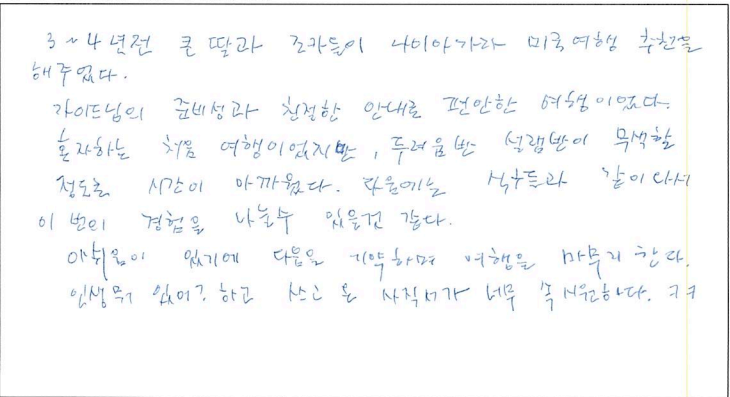 3~4년전 큰 딸과 조카들이 나이아가라 미국여행 추천을
해주었다.
가이드님의 준비성과 친절한 안내로 편안한 여행이었다.
혼자하는 처음 여행이었지만, 두려움반 설램반이 무색할
정도로 시간이 아까웠다. 다음에는 식구들과 같이 다시
이 번의 경험을 나눌수 있을것 같다.
아쉬움이 있기에 다음을 기약하며 여행을 마무리 한다.
인생뭐 있어? 하고 쓰고 온 사직서가 너무 속 시원하다. ㅋㅋ